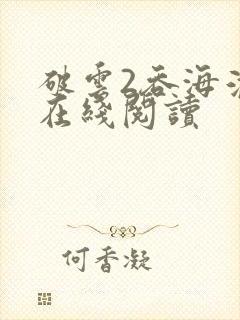 破雲2吞海
在綫閱讀
何香凝